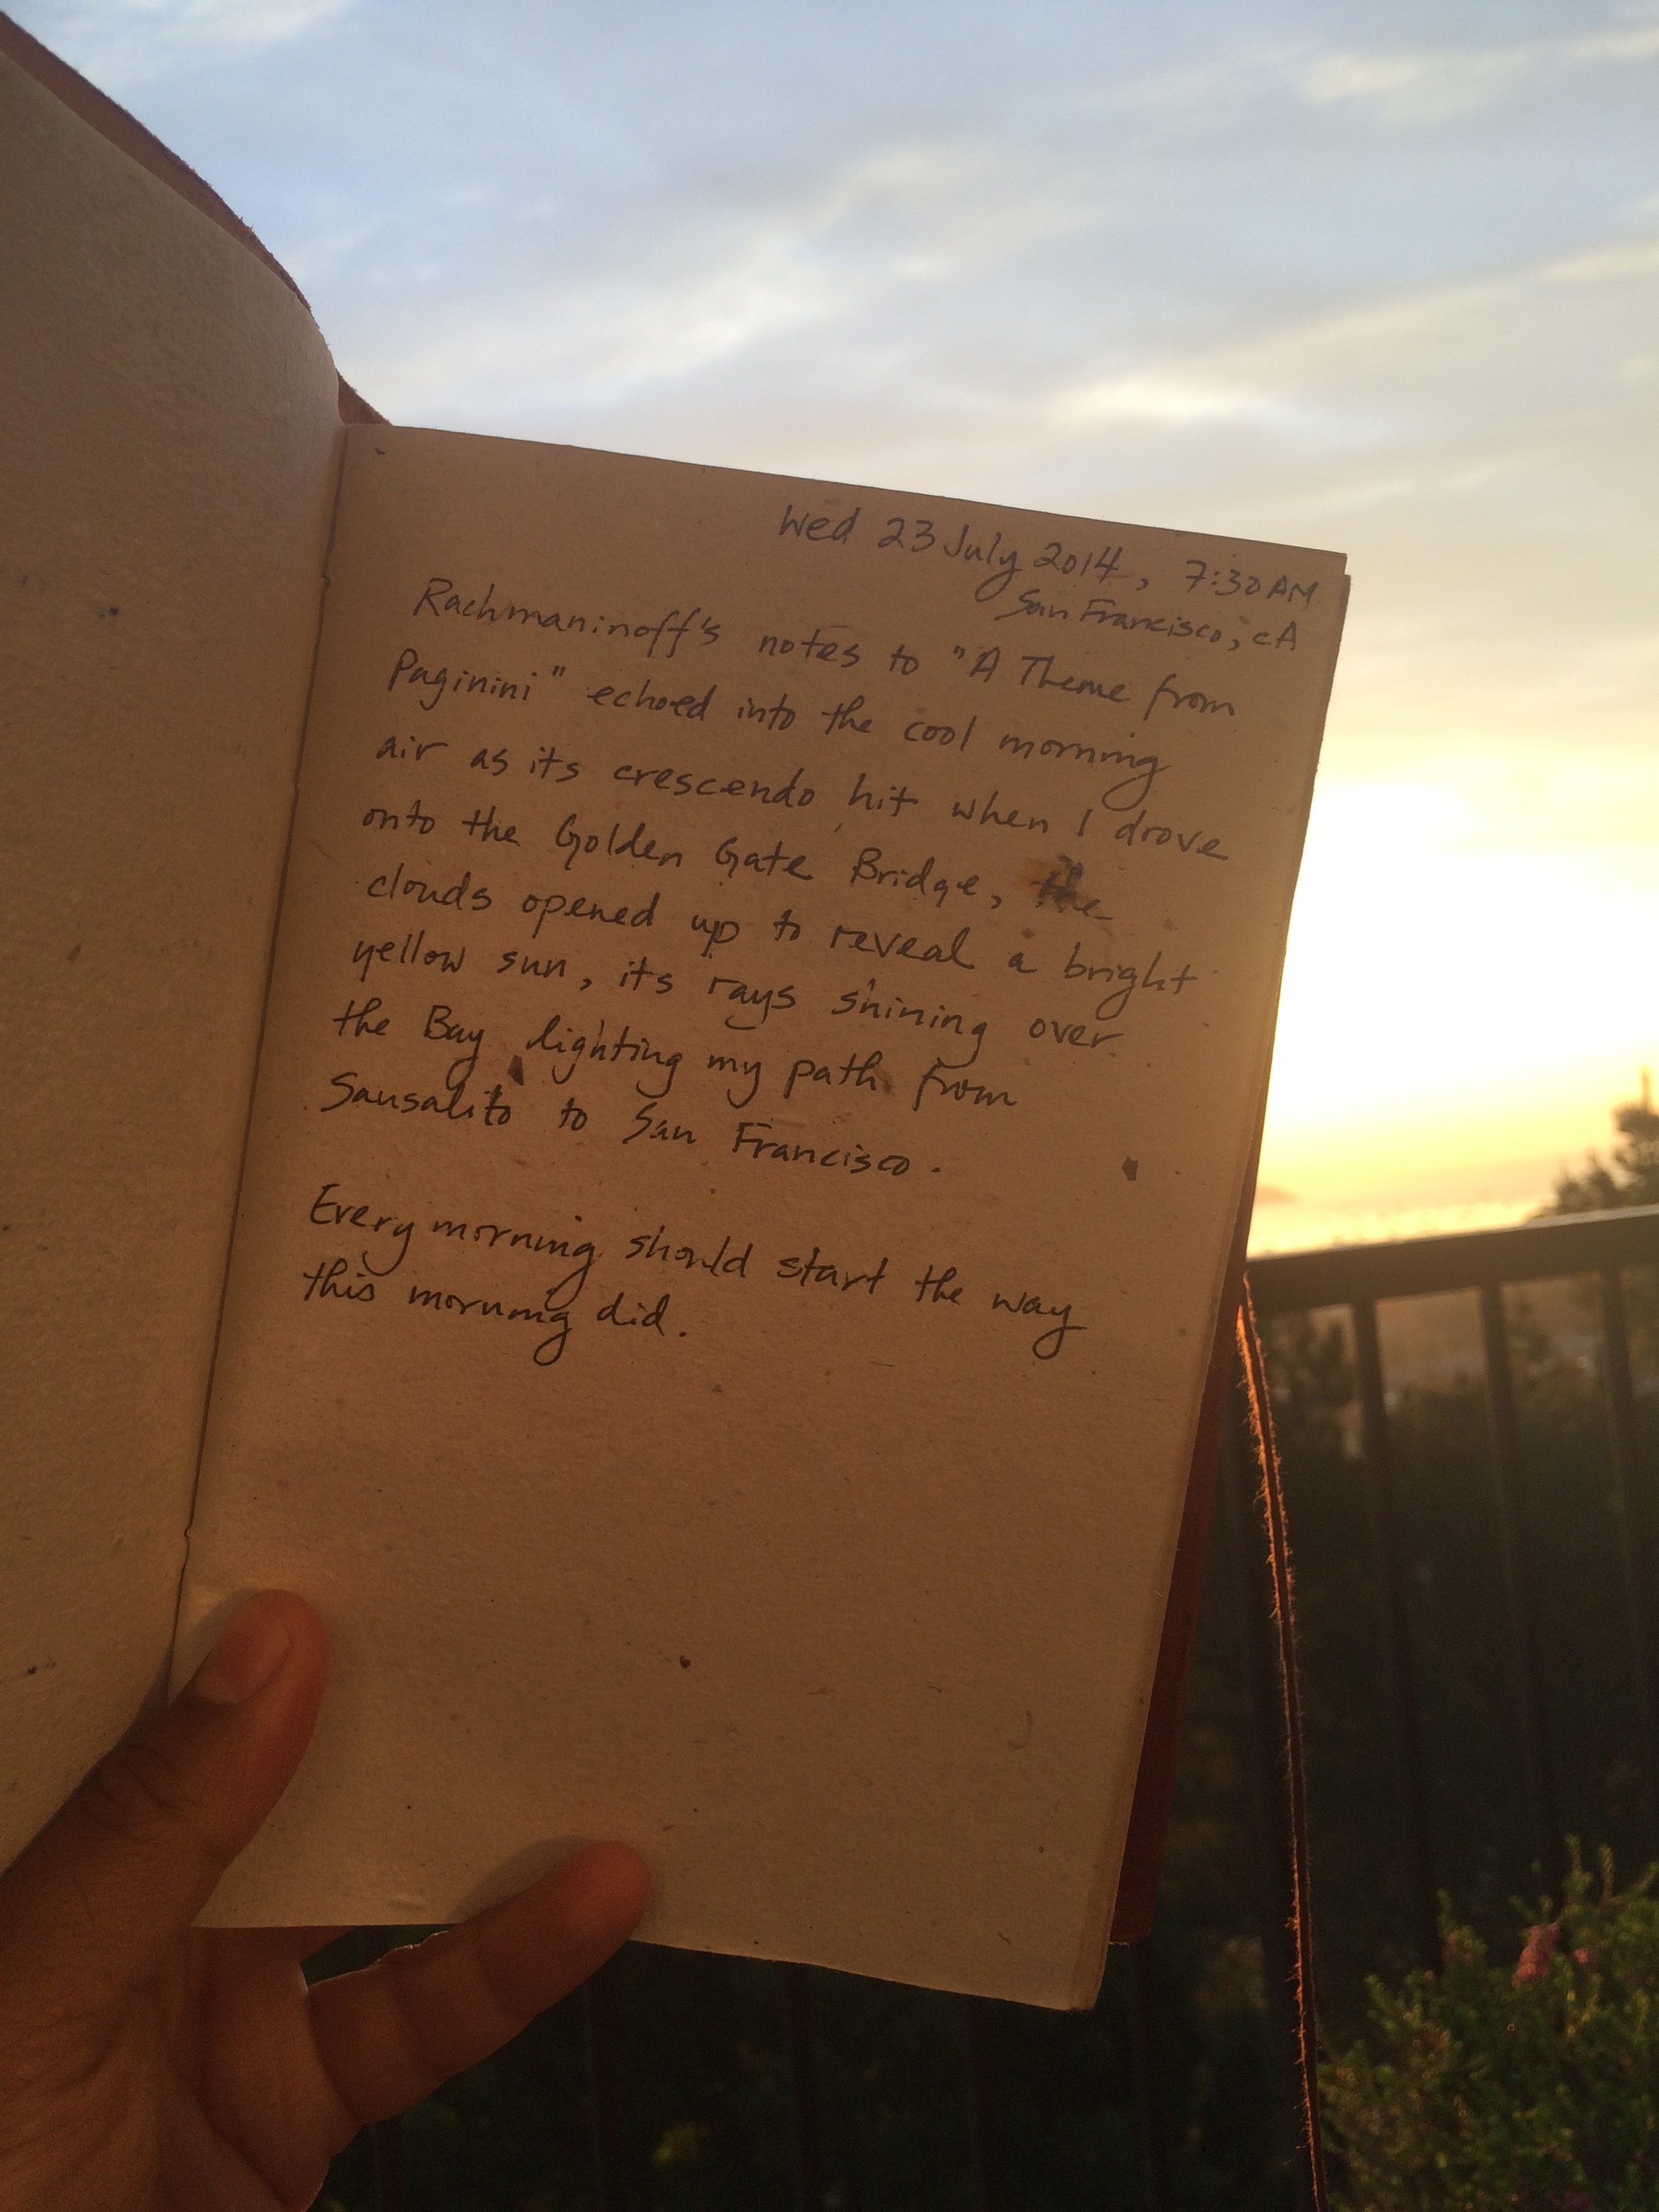 Wed 23 July 2014, 7:30 AM
San Francisco, CA
Rachmaninoff's notes to "A Theme from
Paginini" echoed into the cool morning
air as its crescendo hit when I drove
onto the Golden Gate Bridge, the
clouds opened up to reveal a bright
yellow sun, its rays shining over
the Bay lighting my path from
Sausalito to San Francisco.
Every morning should start the way
this morning did.